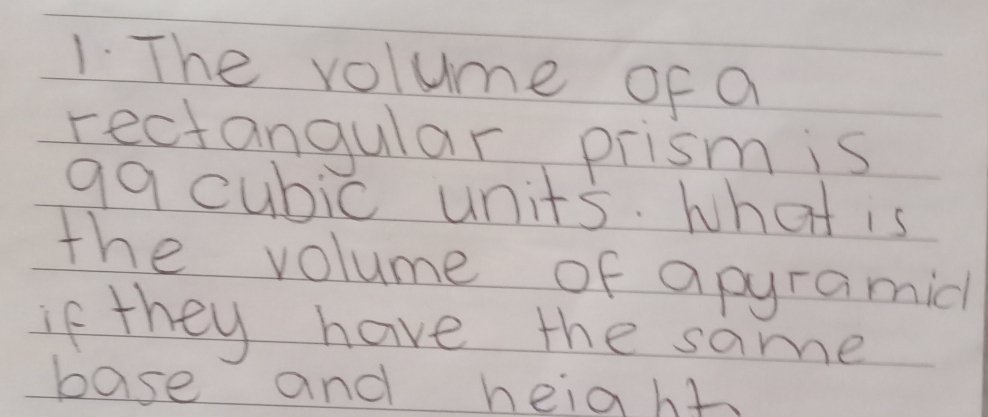 1. The volume of a
rectangular prism is
99 cubic units. What is
the volume of a pyramid
if they have the same
base and height